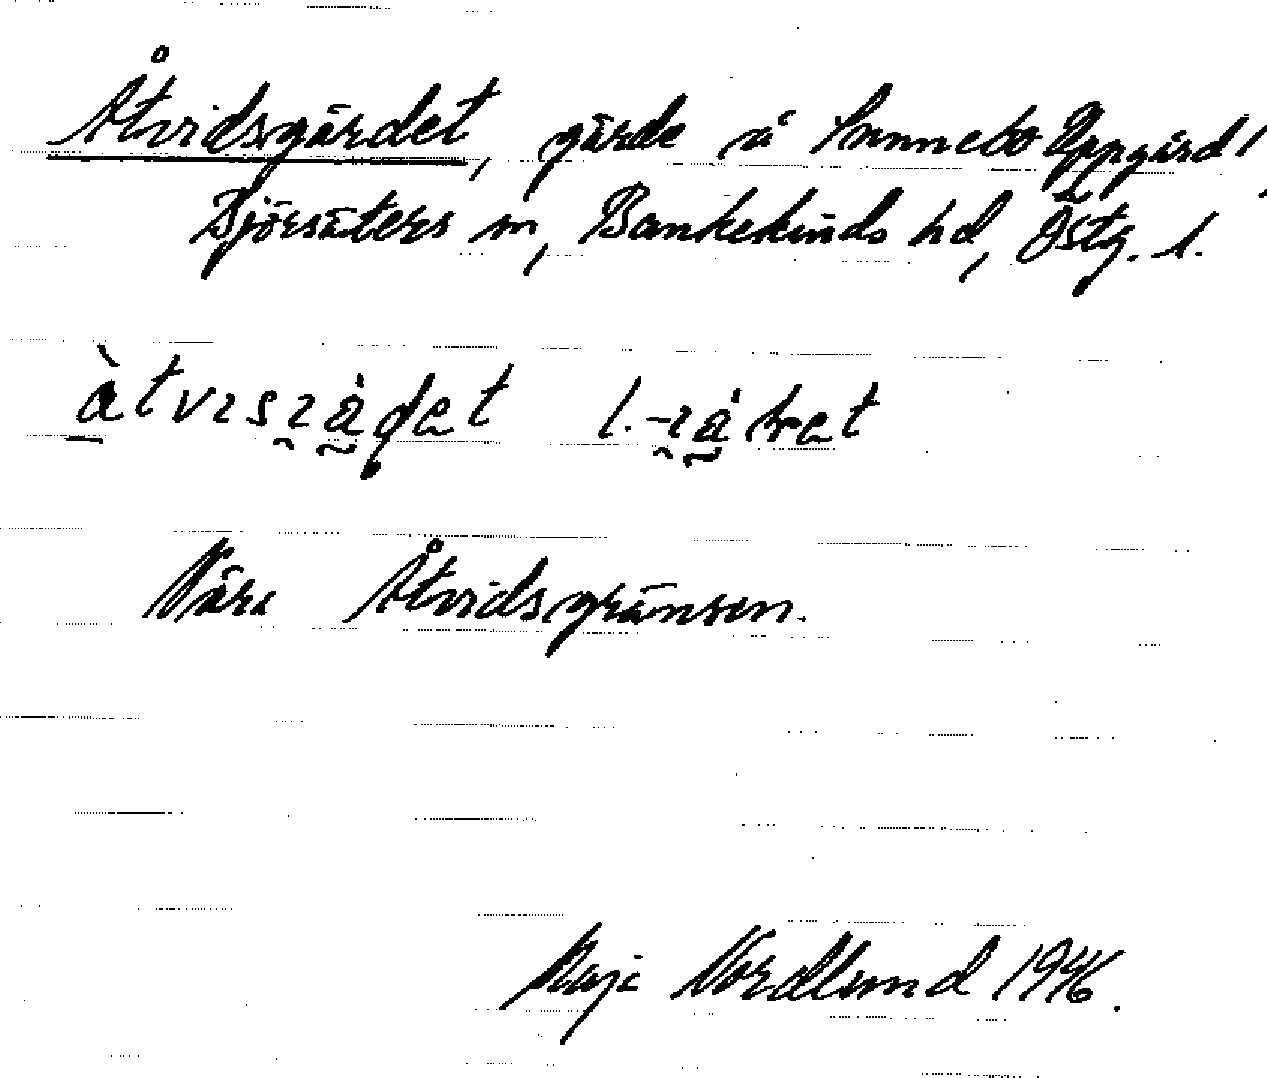 Åtvidsgärdet, gärde å Sunnebo Uppgård,
Björsäters sn, Bankekinds hd, Östg. l.
Nära Åtvidsgränsen.
Maja Nordlund 1946.